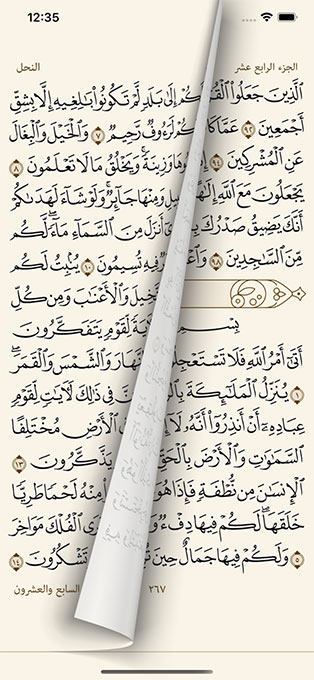 12:35
الجزء الرابع عشر النحل
ٱلَّذِينَ جَعَلُوا۟ إِلَىٰ بَلَدٍ لَّمْ تَكُونُوا۟ بَٰلِغِيهِ إِلَّا بِشِقِّ
أَجْمَعِينَ ٩٢ عَمَّا لَرَءُوفٌ رَّحِيمٌ ٧ وَٱلْخَيْلَ وَٱلْبِغَالَ
عَنِ ٱلْمُشْرِكِينَ ٩٤ وَزِينَةً ۚ وَيَخْلُقُ مَا لَا تَعْلَمُونَ ٨
يَجْعَلُونَ مَعَ ٱللَّهِ إِلَٰهًا وَمِنْهَا جَآئِرٌ ۚ وَلَوْ شَآءَ لَهَدَىٰكُمْ
أَنَّكَ يَضِيقُ صَدْرُكَ أَنزَلَ مِنَ ٱلسَّمَآءِ مَآءً ۖ لَّكُم
مِّنَ ٱلسَّٰجِدِينَ ٩٨ فِيهِ تُسِيمُونَ ١٠ يُنۢبِتُ لَكُم
وَٱلْأَعْنَٰبَ وَمِن كُلِّ
بِسْمِ لِّقَوْمٍ يَتَفَكَّرُونَ
أَتَىٰٓ أَمْرُ ٱللَّهِ فَلَا وَٱلشَّمْسَ وَٱلْقَمَرَ ۖ
١ يُنَزِّلُ ٱلْمَلَٰٓئِكَةَ فِى ذَٰلِكَ لَءَايَٰتٍ لِّقَوْمٍ
عِبَادِهِۦٓ أَنْ أَنذِرُوٓا۟ أَنَّهُۥ لَآ ٱلْأَرْضِ مُخْتَلِفًا
ٱلسَّمَٰوَٰتِ وَٱلْأَرْضَ بِٱلْحَقِّ يَذَّكَّرُونَ ١٣
ٱلْإِنسَٰنَ مِن نُّطْفَةٍ فَإِذَا هُوَ مِنْهُ لَحْمًا طَرِيًّا
خَلَقَهَا ۗ لَكُمْ فِيهَا دِفْءٌ ٱلْفُلْكَ مَوَاخِرَ
٥ وَلَكُمْ فِيهَا جَمَالٌ حِينَ تَشْكُرُونَ ١٤
٢٦٧ السابع والعشرون